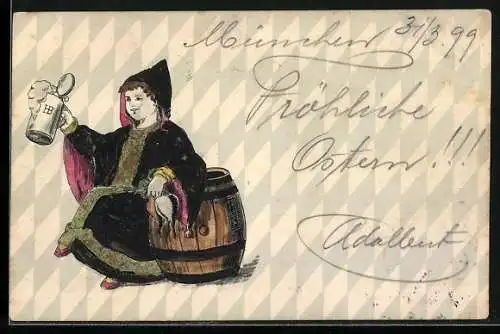 München 31/3.99
Fröhliche
Ostern!!!
Adalbert
HB